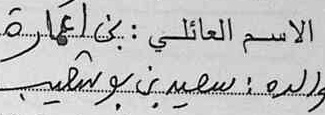 الاسم العائلي : بن اعمارة
والده : سعيد بن بوشعيب